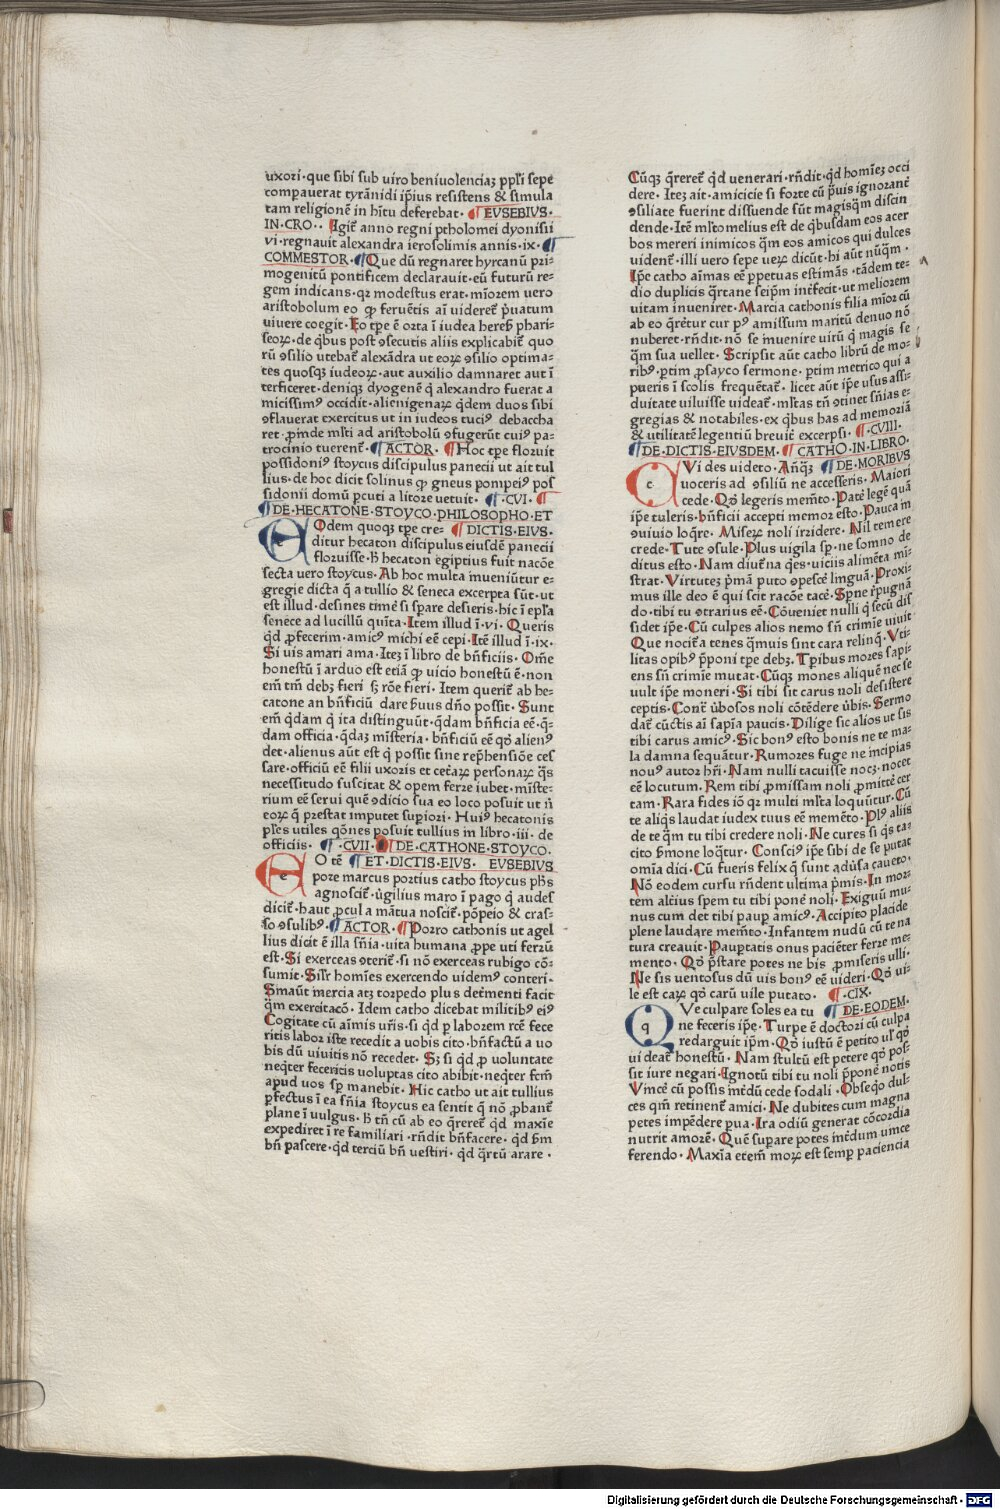 uxori·que sibi sub uiro beniuolenciaꝫ ppl'i sepe
compauerat tyrānidi ip̄ius resistens & simula
tam religionē in hr̄tu deferebat· ¶EVSEBIVS·
IN·CRO·· Igit̄ anno regni ptholomei dyonisii
vi·regnauit alexandra ierosolimis annis·ix·¶
COMMESTOR·¶Que dū regnaret hyrcanū pri⸗
mogenitū pontificem declarauit·eū futurū re⸗
gem indicans·qꝛ modestus erat·mīorem uero
aristobolum eo ꝙ feruētis aī uideret̄ p̄uatum
uiuere coegit·Eo tp̄e ē orta ī iudea hereß phari⸗
seoꝝ·de q̄bus post ꝯsecutis aliis explicabit̄ quo
rū ꝯsilio utebat̄ alexādra ut eoꝝ ꝯsilio optima⸗
tes quosqꝫ iudeoꝝ·aut auxilio damnaret aut ī
terficeret·deniqꝫ dyogenē q̄ alexandro fuerat a
micissimꝰ occidit·alienigenaꝝ q̄dem duos sibi
ꝯflauerat exercitus ut in iudeos tuciꝰ debaccha
ret·ꝓmde ml'ti ad aristobolū ꝯfugerūt cuiꝰ pa⸗
trocinio tuerent̄·¶ACTOR·¶Hoc tp̄e floruit
possidoniꝰ stoycus discipulus panecii ut ait tul
lius·de hoc dicit solinus ꝙ gneus pompeiꝰ pos
sidonii domū p̄cuti a litore uetuit· ¶·CVI·¶
¶DE·HECATONE·STOYCO·PHILOSOPHO·ET
EOdem quoqꝫ tp̄e cre⸗ ¶DICTIS·EIVS·
ditur hecaton discipulus eiusdē panecii
floruisse·h̄ hecaton egiptius fuit nacōe
secta uero stoycus·Ab hoc multa inueniūtur e⸗
gregie dicta q̄ a tullio & seneca excerpta sūt·ut
est illud·desines timē si sp̄are desieris·hic ī epl'a
senece ad lucillū quīta·Item illud ī·vi·Queris
qd̄ ꝓfecerim·amicꝰ michi eē cepi·Itē illud ī·ix·
Si uis amari ama·Iteꝫ ī libro de bn̄ficiis·Om̄e
honestū ī arduo est etiā ꝙ uicio honestū ē·non
em̄ tm̄ debꝫ fieri sꝫ rōe fieri·Item querit̄ ab he⸗
catone an bn̄ficiū dare s̄uus dn̄o possit·Sunt
em̄ q̄dam q̄ ita distinguūt·q̄dam bn̄ficia eē·q̄⸗
dam officia·q̄daꝫ mīsteria·bn̄ficiū eē qd̄ alienꝰ
det·alienus aūt est q̄ possit sine rep̄hensiōe ces
sare·officiū eē filii uxoris et cet̄aꝝ personaꝝ q̄s
necessitudo suscitat & opem ferre iubet·mīste⸗
rium eē serui quē ꝯdicio sua eo loco posuit ut n̄
eoꝝ q̄ prestat imputet sup̄iori·Huiꝰ hecatonis
pl'res utiles q̄ōnes posuit tullius in libro·iii·de
officiis· ¶·CVII·¶DE·CATHONE·STOYCO·
EO tē ¶ET·DICTIS·EIVS· EVSEBIVS
pore marcus portius catho stoycus ph̄s
agnoscit̄·ūgilius maro ī pago q̄ audes
dicit̄·haut ꝓcul a mātua noscit̄·pōpeio & cras⸗
so ꝯsulibꝰ·¶ACTOR·¶Porro cathonis ut agel
lius dicit ē illa sn̄ia·uita humana ꝓpe uti ferrū
est·Si exerceas ꝯterit̄·si nō exerceas rubigo cō⸗
sumit·Sil'r homīes exercendo uidemꝰ conteri·
Smaūt inercia atꝫ torpedo plus det̄menti facit
q̄m exercitacō·Idem catho dicebat militibꝰ eiꝰ
Cogitate cū aīmis ur̄is·si qd̄ p̄ laborem rcē fece
ritis labor iste recedit a uobis cito·bn̄factū a uo
bis dū uiuitis nō recedet·Sꝫ si qd̄ p̄ uoluntate
neqter feceritis uoluptas cito abibit·neqter fcm̄
apud uos sp̄ manebit·Hic catho ut ait tullius
p̄fectus ī ea sn̄ia stoycus ea sentit q̄ nō ꝓbant̄
plane ī uulgus·h̄ tn̄ cū ab eo q̄reret̄ qd̄ maxīe
expediret ī re familiari·rn̄dit bn̄facere·qd̄ s̄m
bn̄ pascere·qd̄ terciū bn̄ uestiri·qd̄ q̄rtū arare·
Cūqꝫ q̄reret̄ qd̄ uenerari·rn̄dit·qd̄ homīeꝫ occi
dere·Iteꝫ ait·amicicie si forte cū p̄uis ignorant̄
ꝯsiliate fuerint dissuende sūt magisq̄m discin
dende·Itē ml'to melius est de q̄busdam eos acer
bos mereri inimicos q̄m eos amicos qui dulces
uident̄·illi uero sepe ueꝝ dicūt·hi aūt nūq̄m·
Ip̄e catho aīmas eē p̄petuas estimās·tādem te⸗
dio duplicis q̄rtane seip̄m int̄fecit·ut meliorem
uitam inueniret·Marcia cathonis filia mīor cū
ab eo q̄rēt̄ur cur pꝰ amissum maritū denuo nō
nuberet·rn̄dit·nō se inuenire uirū q̄ magis se
q̄m sua uellet·Scripsit aūt catho librū de mo⸗
ribꝰ·p̄tim ꝓsayco sermone·p̄tim metrico qui a
pueris ī scolis frequētat̄·licet aūt ip̄e usus assi⸗
duitate uiluisse uideat̄·ml'tas tn̄ ꝯtinet sn̄ias e⸗
gregias & notabiles·ex q̄bus has ad memoriā
& utilitatē legentiū breuit̄ excerpsi·¶·CVIII·
¶DE·DICTIS·EIVSDEM·¶CATHO·IN·LIBRO·
CVi des uideto·Anq̄ꝫ ¶DE·MORIBVS
uoceris ad ꝯsiliū ne accesseris·Maiori
cede·Qd̄ legeris mem̄to·Patē legē quā
ip̄e tuleris·bn̄ficii accepti memor esto·Pauca in
ꝯuiuio loq̄re·Miseꝝ noli irridere·Nil temere
crede·Tute ꝯsule·Plus uigila sp̄·ne somno de
ditus esto·Nam diut̄na q̄es·uiciis alimēta mī⸗
strat·Virtuteꝫ p̄mā puto ꝯpescē linguā·Proxi⸗
mus ille deo ē qui scit racōe tacē·Sp̄ne r̄pugnā
do·tibi tu ꝯtrarius eē·Cōueniet nulli q̄ secū dis
sidet ip̄e·Cū culpes alios nemo sn̄ crimīe uiuit
Que nocit̄a tenes q̄muis sint cara relinq̄·Vti⸗
litas opibꝰ p̄poni tp̄e debꝫ·Tp̄ibus mores sapi⸗
ens sn̄ crimīe mutat·Cūqꝫ mones aliquē nec se
uult ip̄e moneri·Si tibi sit carus noli desistere
ceptis·Cont̄ ūbosos noli cōtēdere ūbis·Sermo
dat̄ cūctis aī sapīa paucis·Dilige sic alios ut sis
tibi carus amicꝰ·Sic bonꝰ esto bonis ne te ma⸗
la damna sequātur·Rumores fuge ne incipias
nouꝰ autor hr̄i·Nam nulli tacuisse nocꝫ·nocet
eē locutum·Rem tibi ꝓmissam noli ꝓmittē cer
tam·Rara fides iō qꝛ multi ml'ta loquūtur·Cū
te aliq̄s laudat iudex tuus eē memēto·Plꝰ aliis
de te q̄m tu tibi credere noli·Ne cures si q̄s ta⸗
cito s̄mone loq̄tur·Consciꝰ ip̄e sibi de se putat
omīa dici·Cū fueris felix q̄ sunt adūsa caueto·
Nō eodem cursu rn̄dent ultima p̄mis·In mor⸗
tem alc̄ius spem tu tibi ponē noli·Exiguū mu⸗
nus cum det tibi paup̄ amicꝰ·Accipito placide
plene laudare mem̄to·Infantem nudū cū te na
tura creauit·Paup̄tatis onus paciēter ferre me⸗
mento·Qd̄ p̄stare potes ne bis ꝓmiseris ulli·
Ne sis uentosus dū uis bonꝰ eē uideri·Qd̄ ui⸗
le est caꝝ qd̄ carū uile putato· ¶·CIX·
QVe culpare soles ea tu ¶DE·EODEM·
ne feceris ip̄e·Turpe ē doctori cū culpa
redarguit ip̄m·Qd̄ iustū ē petito ul' qd̄
uideat̄ honestū·Nam stultū est petere qd̄ pos⸗
sit iure negari·Ignotū tibi tu noli p̄ponē notis
Vincē cū possis int̄dū cede sodali·Obseqo dul⸗
ces qm̄ retinent̄ amici·Ne dubites cum magna
petes impēdere p̄ua·Ira odiū generat cōcordia
nutrit amorē·Quē sup̄are potes int̄dum uince
ferendo·Maxīa etem̄ moꝝ est semp̄ paciencia
Digitalisierung gefördert durch die Deutsche Forschungsgemeinschaft - DFG